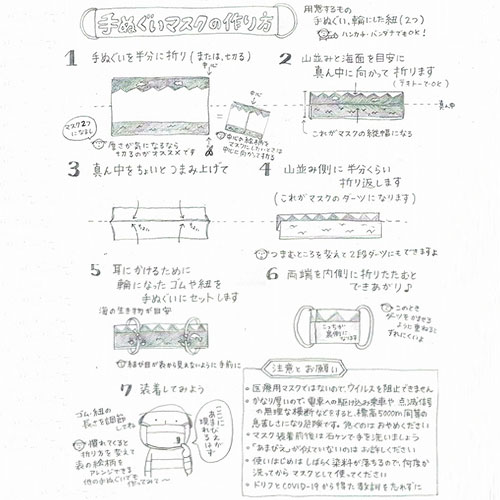 手ぬぐいマスクの作り方
用意するもの
手ぬぐい、輪にした紐(2つ)
ハンカチ・バンダナでもOK!
1 手ぬぐいを半分に折り(または、切る)
中心
マスク2つ
になるし
厚さが気になるなら
切るのがオススメです
=
中心
中心の絵柄を
マスクにしたいときは
中心に向かって折る
2 山並みと海面を目安に
真ん中に向かって折ります
(テキトーでOK)
真ん中
これがマスクの縦幅になる
3 真ん中をちょいとつまみ上げて
4 山並み側に半分くらい
折り返します
(これがマスクのダーツになります)
つまむところを変えて2段ダーツにもできますよ
5 耳にかけるために
輪になったゴムや紐を
手ぬぐいにセットします
海の生き物が目安
結び目が表から見えないように手前に
6 両端を内側に折りたたむと
できあがり♪
こっちが
裏側に
なります
このとき
ダーツをかませる
ように重ねると
ずれにくいよ
7 装着してみよう
ゴム・紐の
長さを調節
してね
慣れてくると
折り方を変えて
表の絵柄を
アレンジできます
他の手ぬぐいでも
作ってみて〜
ここに
あまびえが
現れるはず
注意とお願い
・医療用マスクではないので、ウイルスを阻止できません
・かなり厚いので、電車への駆け込み乗車や点滅信号
の無理な横断などをすると、標高5000m同等の
息苦しさになり危険です。急ぐのはおやめください
・マスク装着前後は石ケンで手を洗いましょう
・"あまびえ"が似ていないのはお許しください
・使いはじめはしばらく染料が落ちるので、何度か
洗ってからマスクとして使ってください
・ドリフとCOVID-19から得た教訓をたれずに